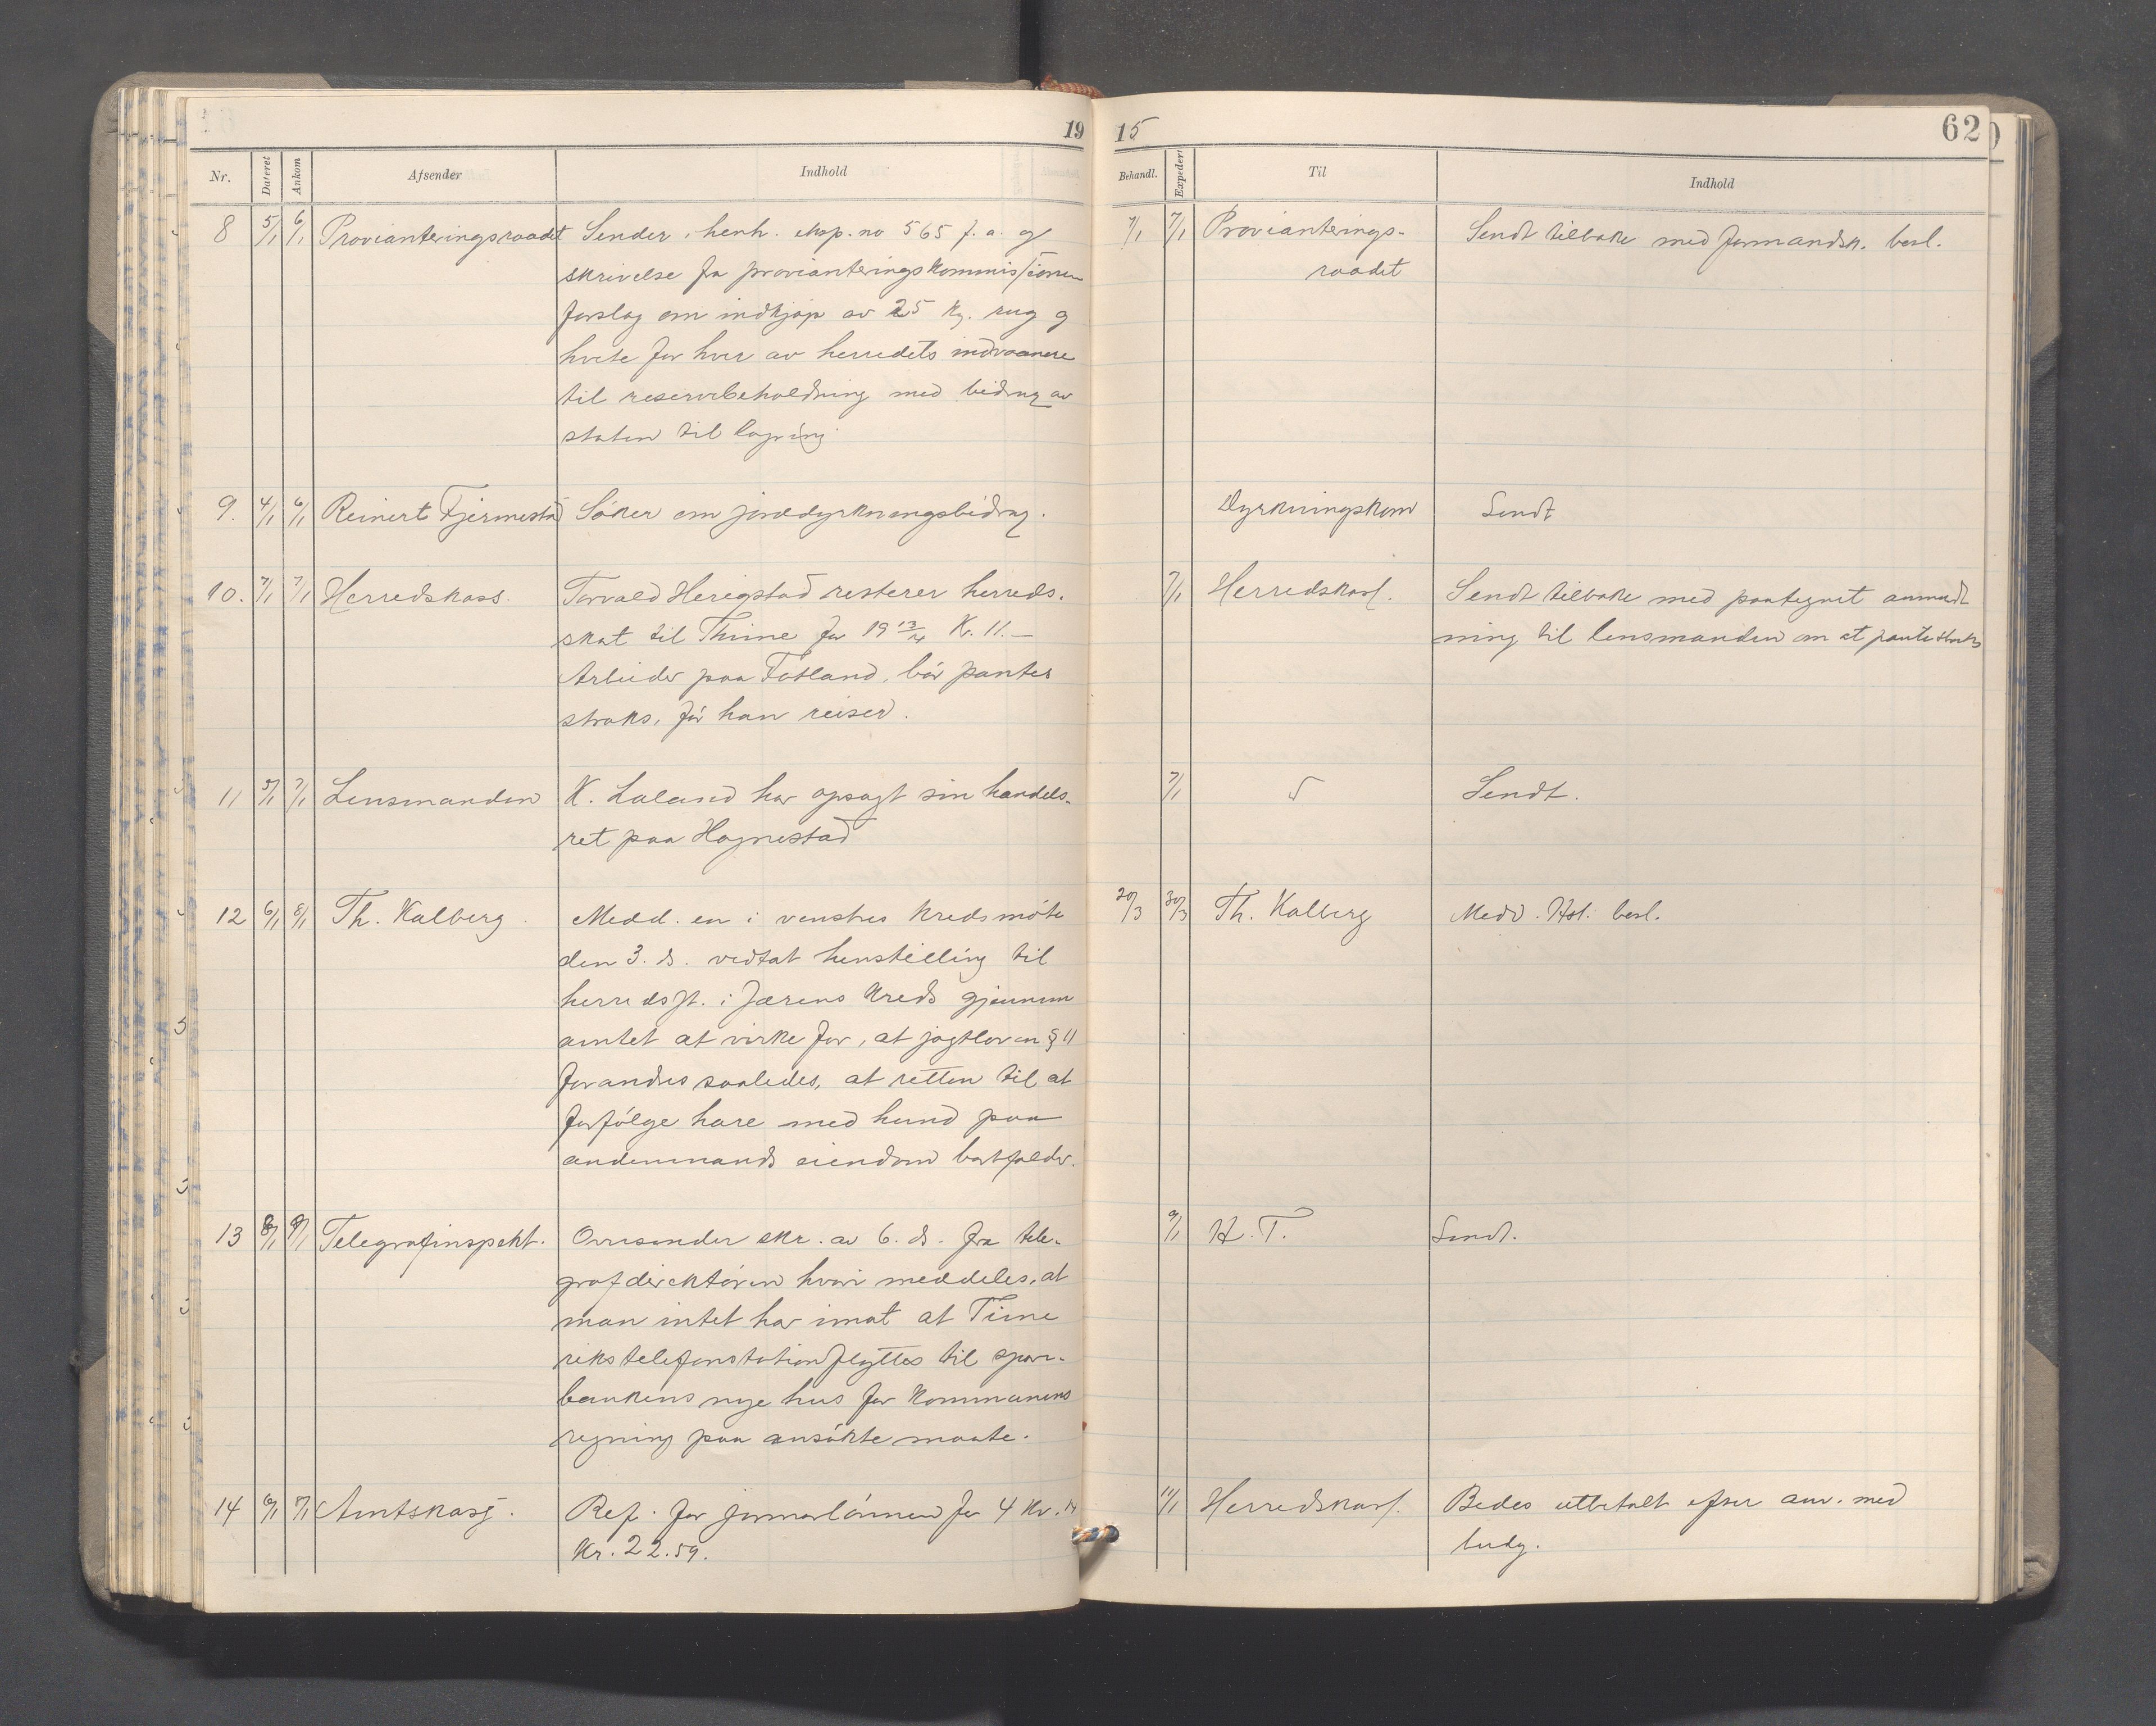 19 15
62
Nr. Dateret Ankom Afsender Indhold
Behandl. Expedert Til Indhold
8 5/1 6/1 Provianteringsraadet Sender i henh. ekop. no 565 f. a. og
skrivelse fra provianteringskommissionen
forslag om indkjøp av 25 kg. rug og
hvete for hver av herredets indvaanere
til reservebeholdning med bidrag av
staten til lagring
7/1 7/1 Provianterings-
raadet
Sendt tilbake med formandsk. besl.
9. 4/1 6/1 Reinert Fjermestad Søker om jorddyrkningsbidrag.
Dyrkningskom Sendt
10. 7/1 7/1 Herredskass. Torvald Herigstad resterer herreds-
skat til Thime for 19 13/14 Kr. 11.-
Arbeider paa Fotland, bør pantes
straks, før han reiser.
7/1 Herredskass. Sendt tilbake med paategnet anmod
ning til lensmanden om at pante straks
11 5/1 7/1 Lensmanden K. Laland har opsagt sin handels-
ret paa Hognestad
7/1 Sendt.
12 6/1 8/1 Th. Kalberg. Medd. en i venstres kredsmøte
den 3. ds. vedtat henstilling til
herredsst. i Jærens kreds gjennem
amtet at virke for, at jagtloven § 11
forandres saaledes, at retten til at
forfølge hare med hund paa
andenmands eiendom bortfalder.
20/3 30/3 Th. Kalberg Medd. Hst. besl.
13 8/1 9/1 Telegrafinspekt. Oversender skr. av 6. ds. fra tele-
grafdirektøren hvori meddeles, at
man intet har imot at Time
rikstelefonstation flyttes til spare-
bankens nye hus for kommunens
regning paa ansøkte maate.
9/1 H. T. Sendt.
14 6/1 8/1 Amtskass. Ref. for jormorlønnen for 4 Kv. 14
Kr. 22.59.
11/1 Herredskass. Bedes utbetalt efter anv. med
budg.